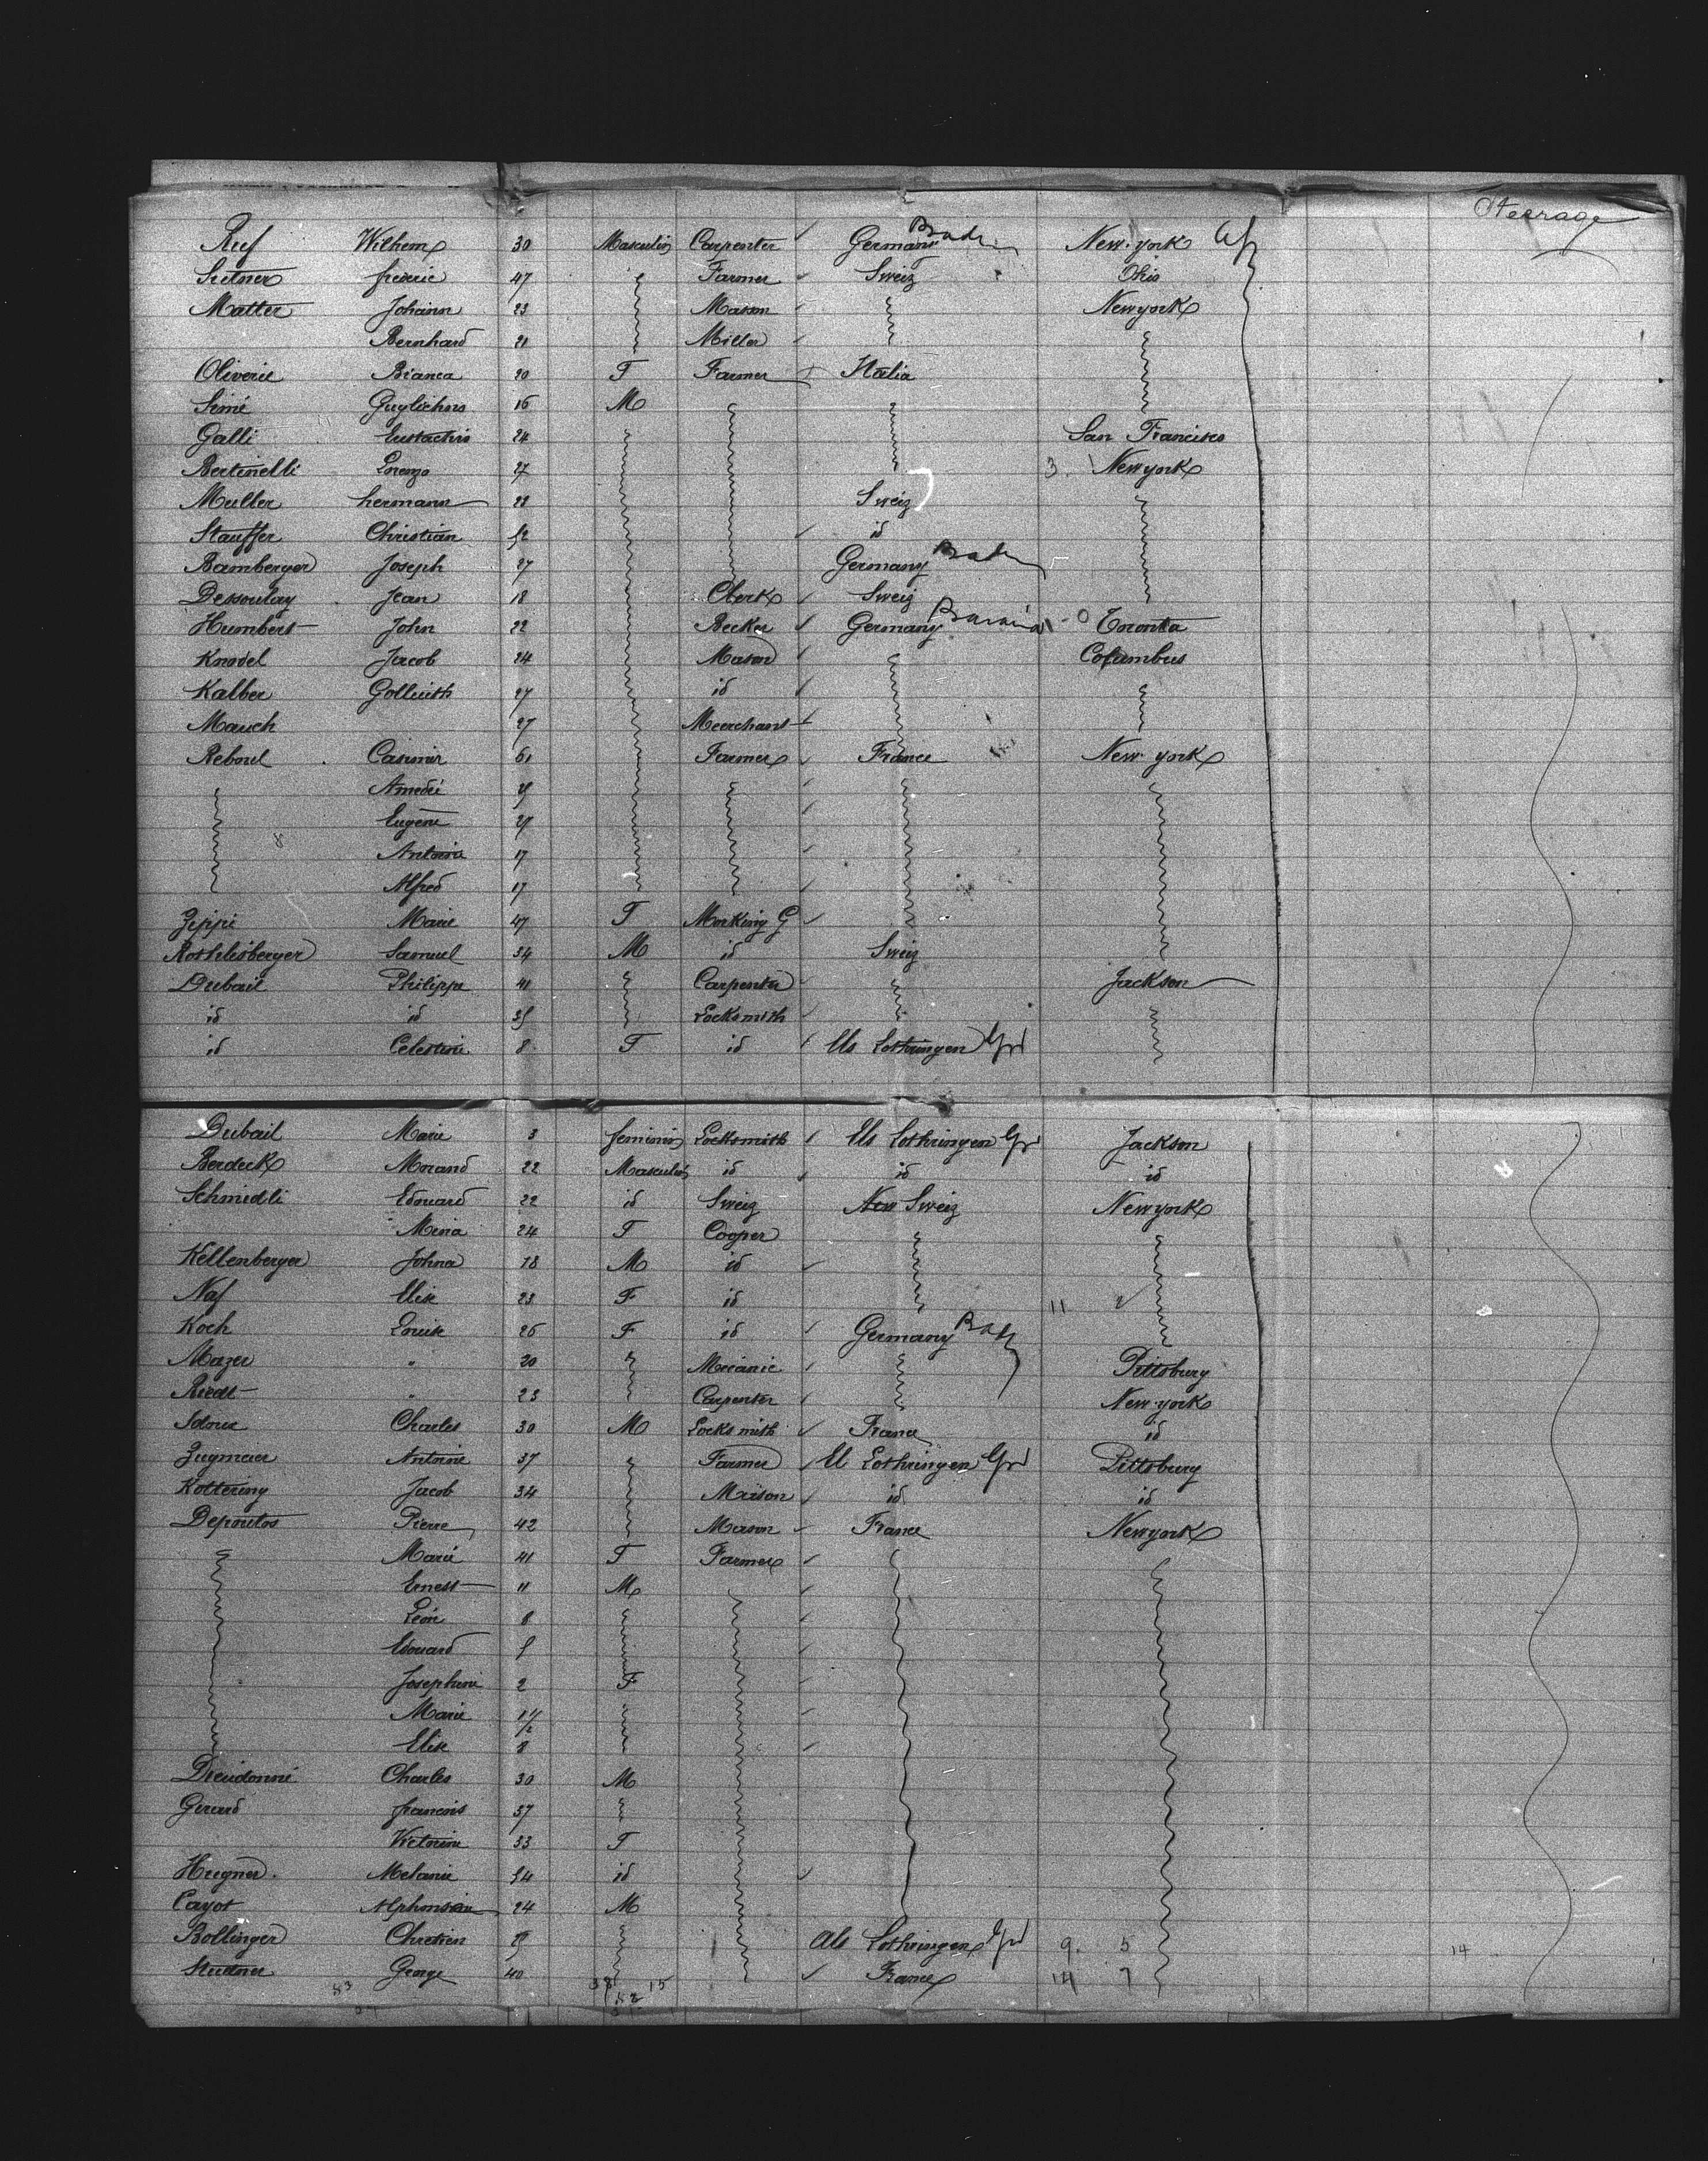 Steerage
Ruf Wilhem 30 Masculin Carpenter Germany Baden New-york
frederic 47 Farmer Sweiz Ohio
Matter Johann 23 Mason Newyork
Bernhard 21 Miller
Oliverie Bianca 20 F Farmer Italia
Simé 16 M
Galli Eustachio 24 San Francisco
Bertinelli Lorenzo 27 3. Newyork
Muller hermann 28 Sweiz
Stauffer Christian 52 id
Bamberger Joseph 27 Germany Baden
Dessoulay Jean 18 Clerk Sweiz
Humbert John 22 Becker Germany Bavaria Toronta
Knodel Jacob 24 Mason Columbus
Kalber 27 id
Mauch 27 Meerchant
Reboul Casimir 61 Farmer France New-york
Amedée
Eugene 27
17
Alfred 17
Zippi Marie 47 F Working G
Rothlisberger Samuel 34 M id Sweiz
Dubail Philippe 41 Carpenter Jackson
id id 35 Locksmith
id Celestine 8 F id Els Lothringen
Dubail Marie 3 feminin Locksmith Els Lothringen Jackson
Berdeck Morand 22 Masculin id id id
Schmidli Edouard 22 id Sweiz New Sweiz Newyork
24 F Cooper
Kellenberger 18 M id
Naf Elise 23 F id 11
Koch Louise 26 F id Germany Baden
Mazer " 20 Mecanic Pittsburg
Riedt " 23 Carpenter New-york
Charles 30 M Locksmith France id
Antoine 37 Farmer El Lothringen Pittsburg
Kottering Jacob 34 Maison id id
Depoutos Pierre 42 Mason France Newyork
Marie 41 F Farmer
Ernest 11 M
Léon 8
Edouard 5
Josephine 2 F
Marie 1 1/2
Elise 8
Dieudonné Charles 30 M
Gerard francois 37
Victorine 33 F
Hugner Melanie 34 id
Cayot 24 M
Bollinger Chretien Als Lothringen 9. 5 14
George 40 France 14 7
38 15